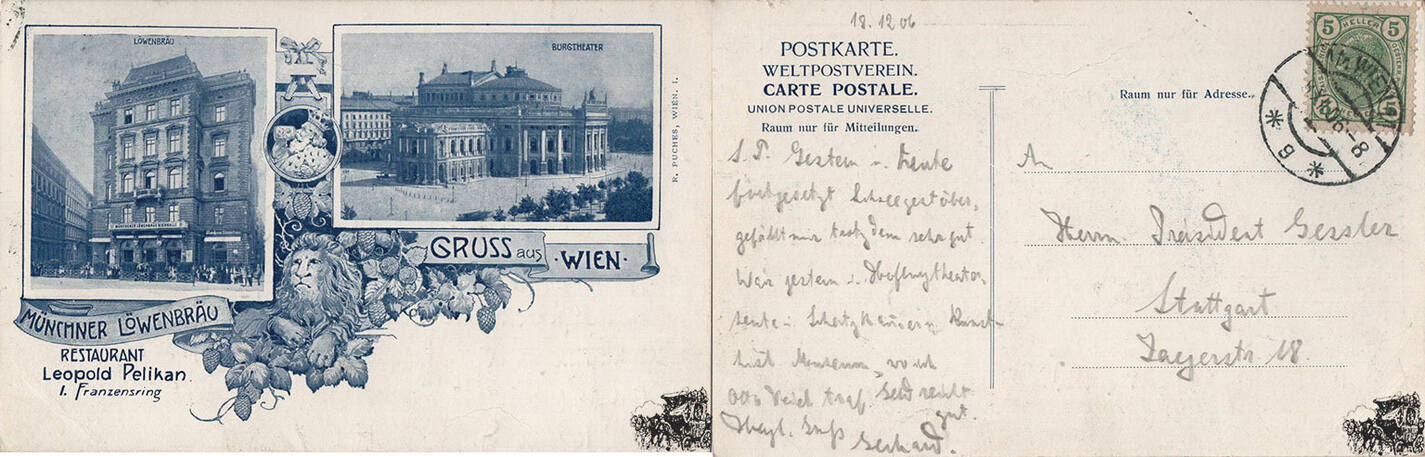 LÖWENBRÄU
MÜNCHENER LÖWENBRÄU BIERHALLE
BURGTHEATER
R. PUCHES, WIEN. I.
GRUSS aus · WIEN ·
MÜNCHNER LÖWENBRÄU
RESTAURANT
Leopold Pelikan.
I. Franzensring
18.12 06
POSTKARTE.
WELTPOSTVEREIN.
CARTE POSTALE.
UNION POSTALE UNIVERSELLE.
Raum nur für Mitteilungen.
Gestern u. heute
fortgesetzt Schneegestöber,
gefällt mir trotzdem sehr gut.
War gestern i. Hofburgtheater
heute i. Schatzkammer u. Kunst-
hist Museum, wo ich
traf. Seid recht
gut.
Herzl. Gruß
Gerhard.
Raum nur für Adresse.
5 HELLER 5
WIEN
6
An
Herrn Präsident Gessler
Stuttgart
Jaegerstr 18.